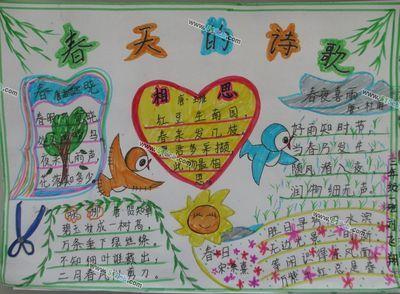 春天的诗歌
春
夜来 雨声
花落知多少
相思
唐·王维
红豆生南国,
春来发几枝.
愿君多采撷
此物最相
思
春夜喜雨
唐·杜甫
好雨知时节,
当春乃发生.
随风潜入夜
润物细无声.
咏柳 唐 贺知章
碧玉妆成一树高,
万条垂下绿丝绦.
不知细叶谁裁出,
二月春风似剪刀.
春日
宋 朱熹
胜日寻芳泗水滨
无边光景一时新
等闲识得东风面
万紫千红总是春